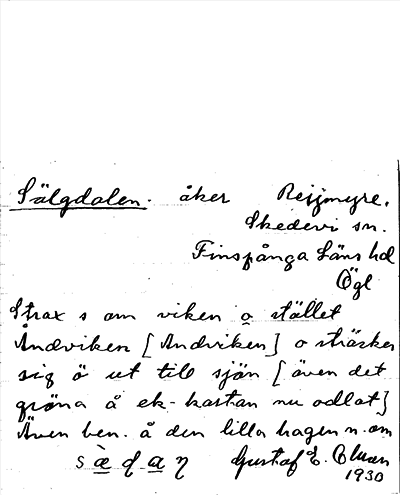 Sälgdalen. åker Rejjmyre.
Skedevi sn.
Finspånga Läns hd
Ögl
Strax s om viken o stället
Åndviken [Andviken] o sträcker
sig ö ut till sjön [även det
gröna å ek-kartan nu odlat]
Även ben. å den lilla hagen n. om
Gustaf E.
1930